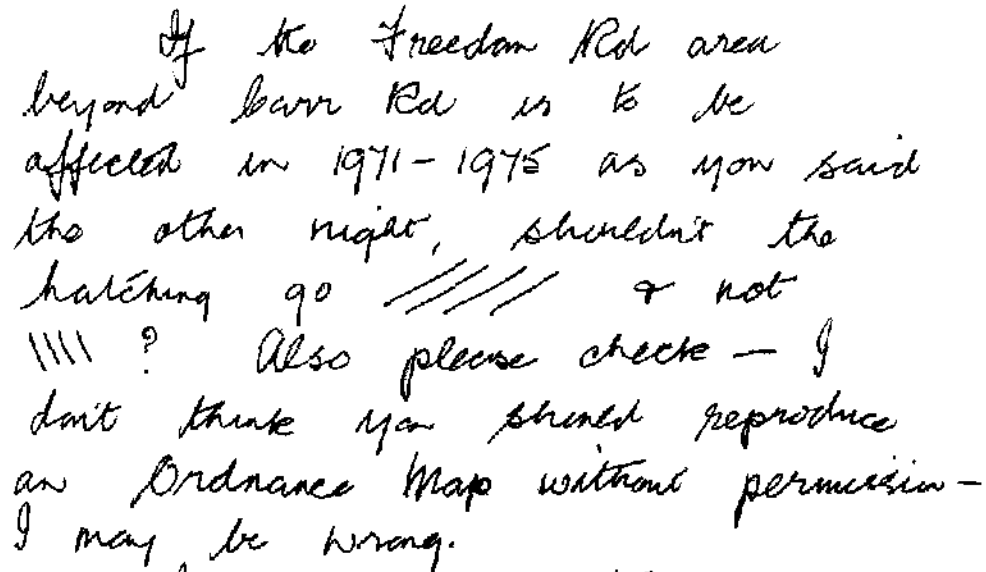 If the Freedom Rd area
beyond Carr Rd is to be
affected in 1971-1975 as you said
the other night, shouldn't the
hatching go ///// & not
\\\\ ? Also please check — I
don't think you should reproduce
an Ordnance Map without permission -
I may be wrong.